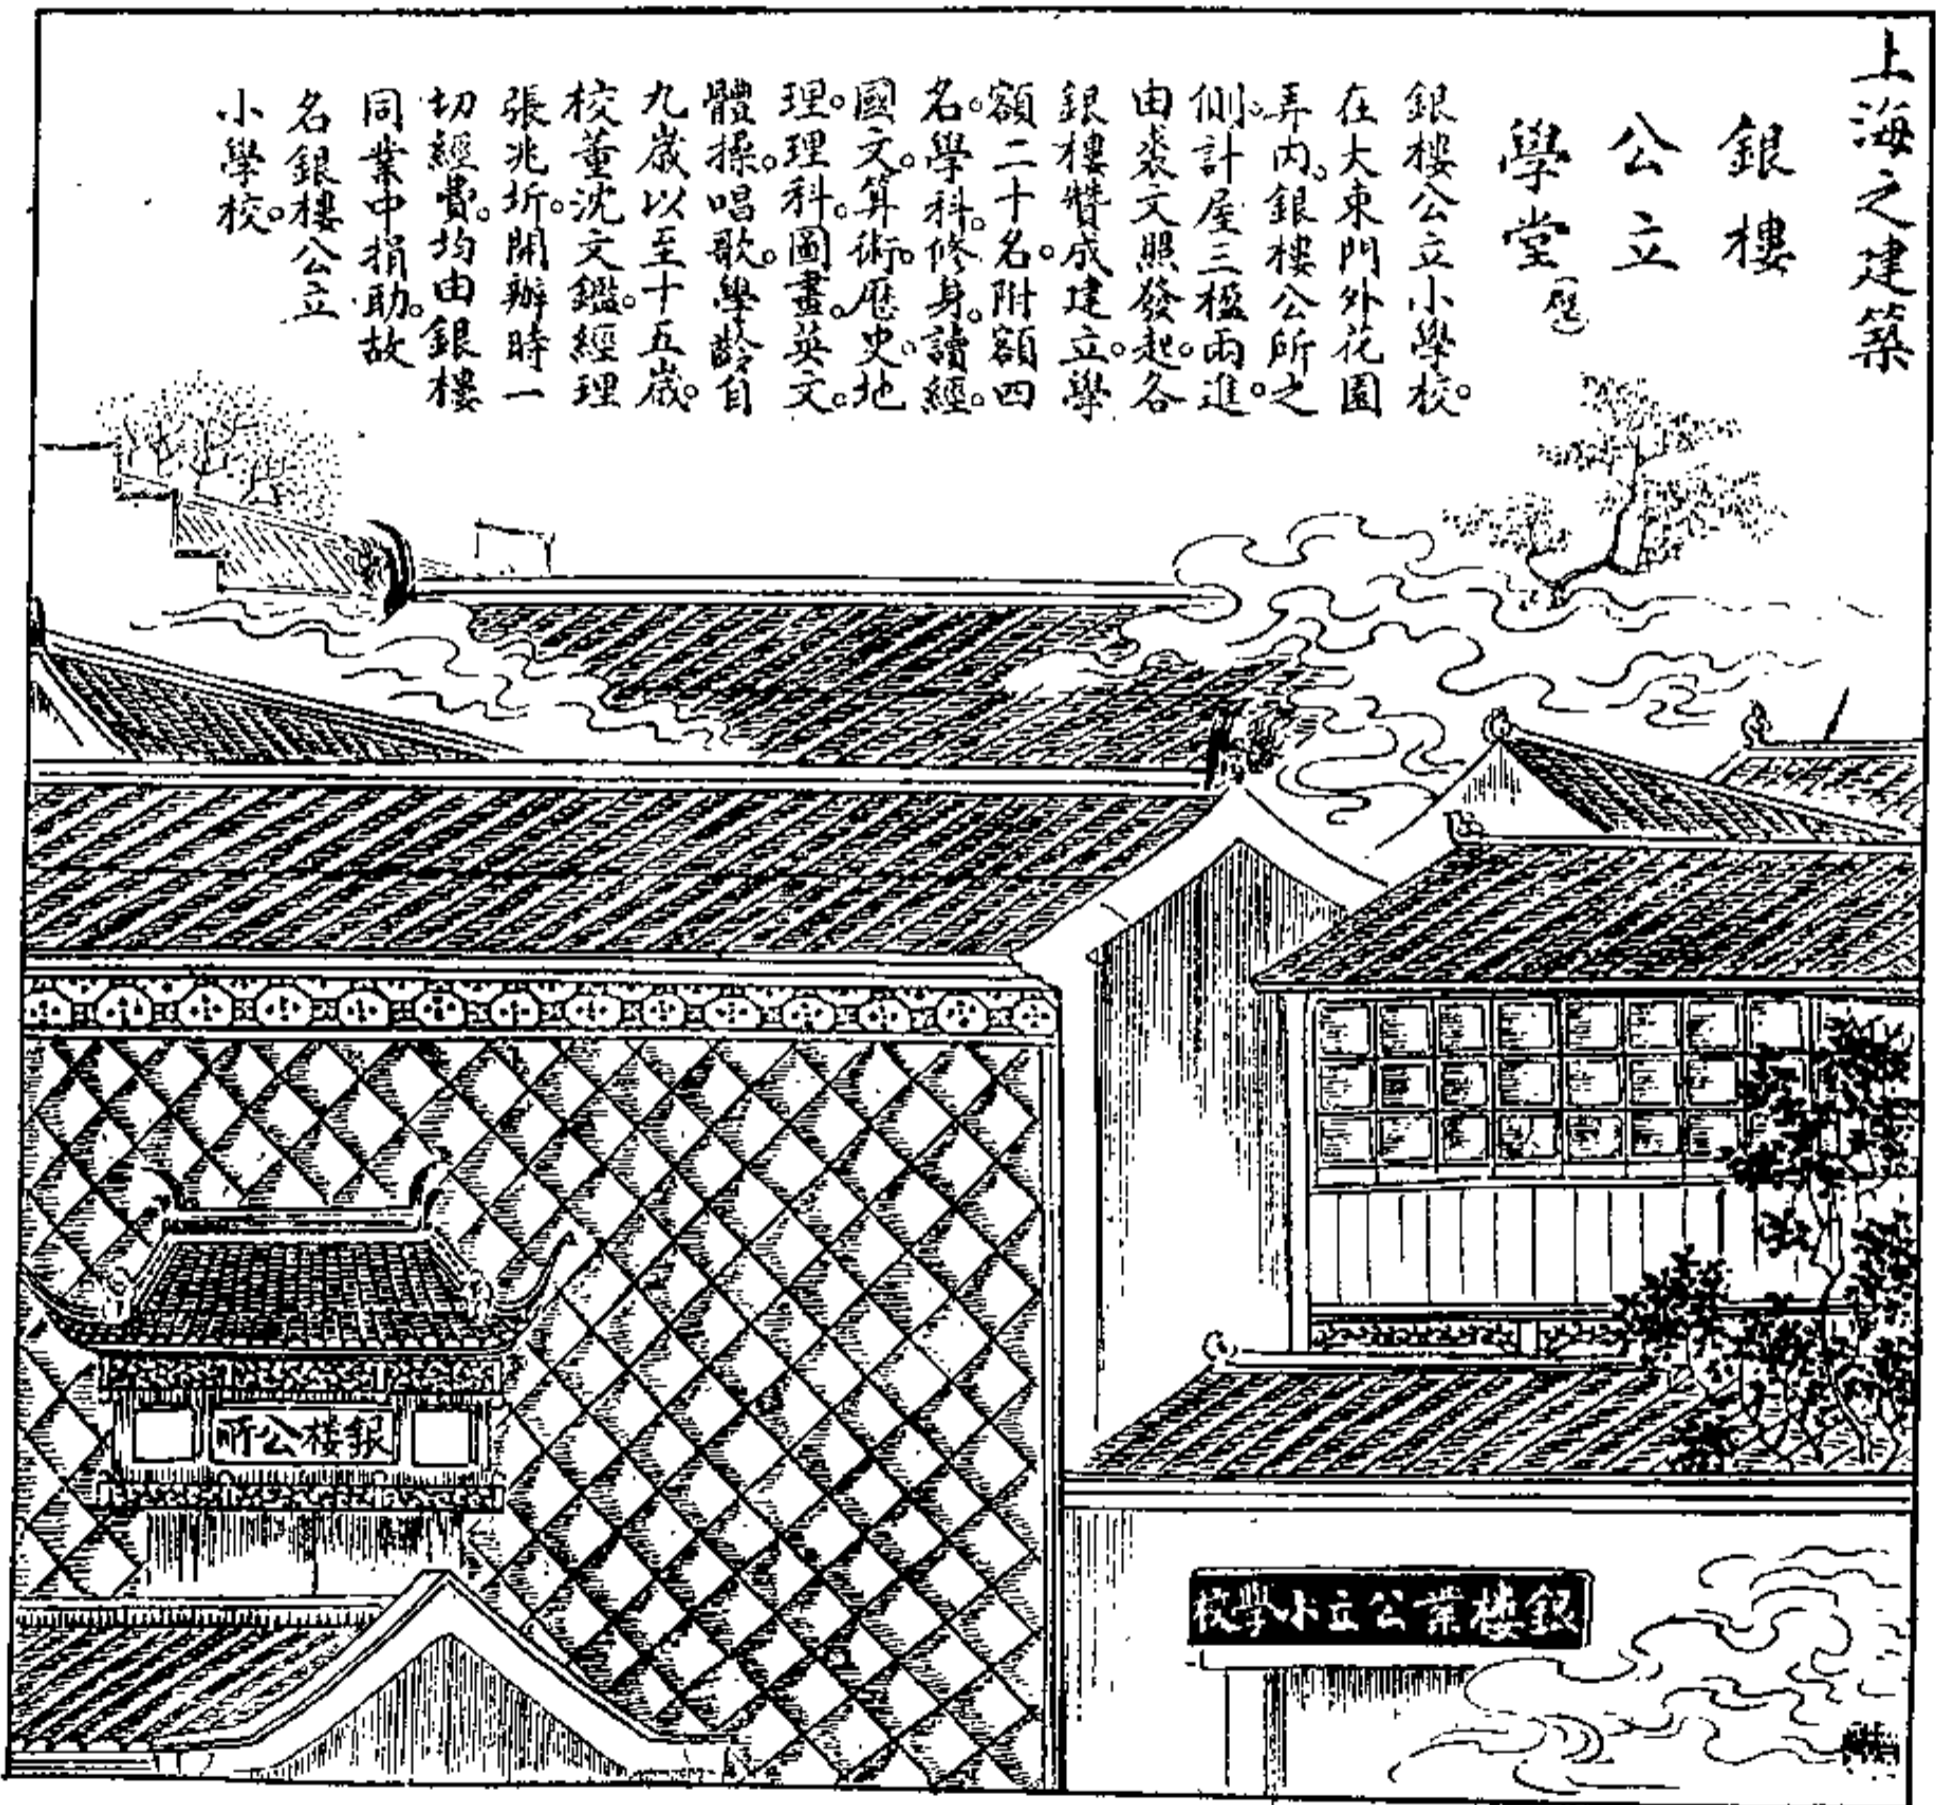 上海之建築
銀樓
公立
學堂
銀樓公立小學校。
在大東門外花園
弄內。銀樓公所之
側。計屋三楹兩進。
由裘文照發起。各
銀樓贊成建立。學
額二十名。附額四
名。學科。修身。讀經。
國文。算術。歷史。地
理。理科。圖畫。英文。
體操。唱歌。學齡自
九歲以至十五歲。
校董沈文鑑。經理
張兆圻。開辦時一
切經費。均由銀樓
同業中捐助。故
名銀樓公立
小學校。
銀樓公所
銀樓業公立小學校